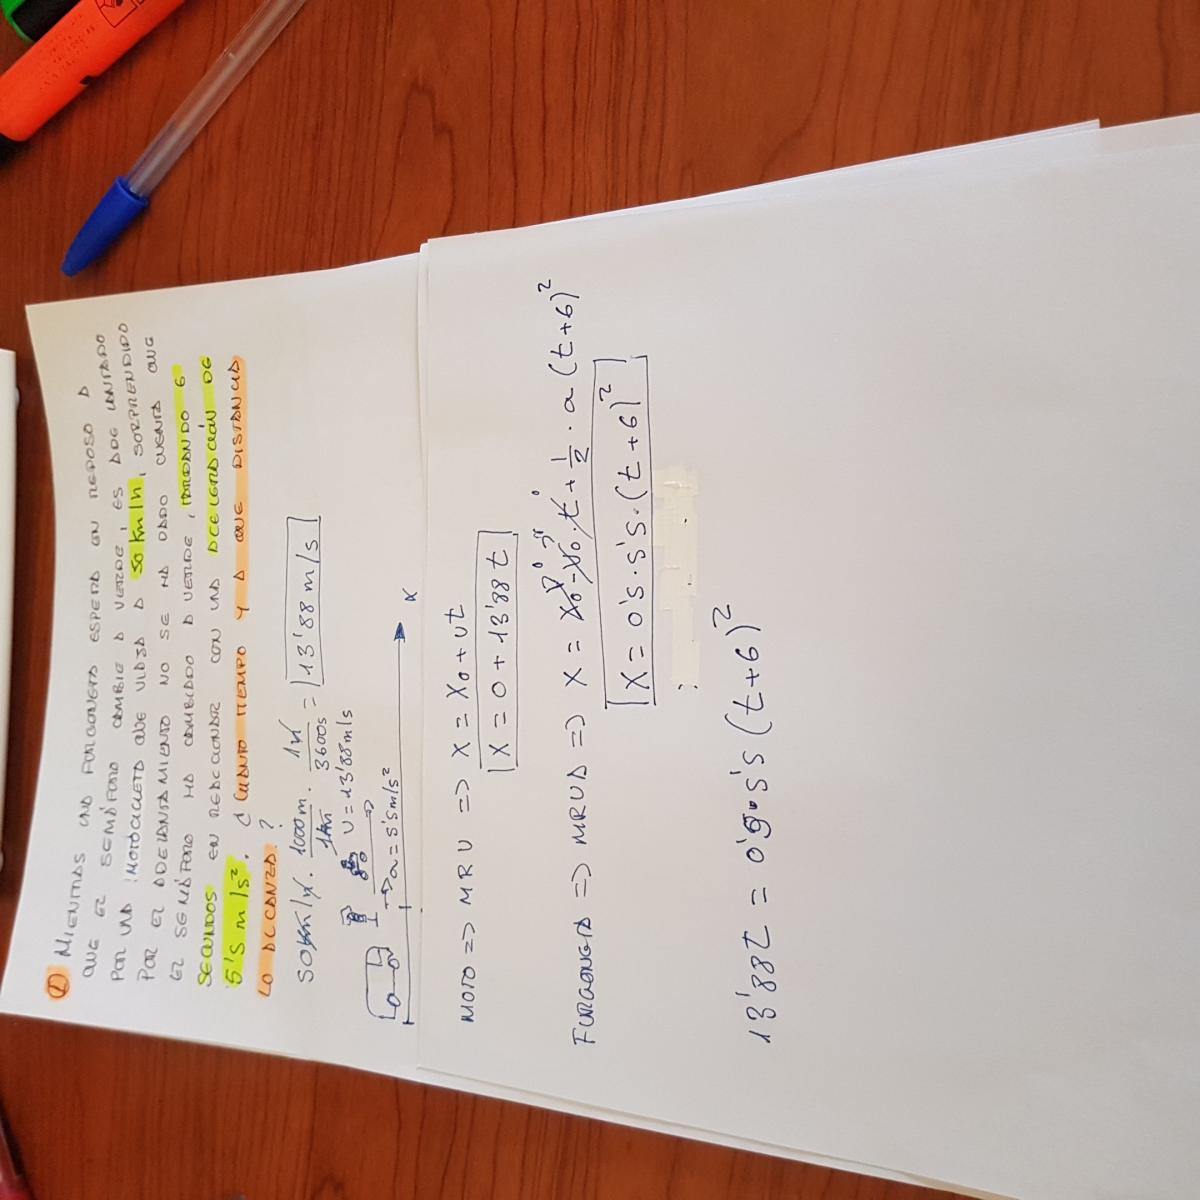 ① MIENTRAS UNA FURGONETA ESPERA EN REPOSO A
QUE EL SEMÁFORO CAMBIE A VERDE, ES ADELANTADO
POR UNA MOTOCICLETA QUE VIAJA A 50 Km/h, SORPRENDIDO
POR EL ADELANTAMIENTO NO SE HA DADO CUENTA QUE
EL SEMÁFORO HA CAMBIADO A VERDE, TARDANDO 6
SEGUNDOS EN REACCIONAR CON UNA ACELERACIÓN DE
5's m/s². ¿CUÁNTO TIEMPO Y A QUE DISTANCIA
LO ALCANZA?
50 km/h · 1000m / 1km · 1h / 3600s = 13'88 m/s
v = 13'88 m/s
a = 5's m/s²
x
MOTO => MRU => X = X0 + vt
X = 0 + 13'88 t
FURGONETA => MRUA => X = X0 - V0 · t + 1/2 · a (t+6)²
X = 0's · 5's · (t+6)²
13'88t = 0's · 5's (t+6)²